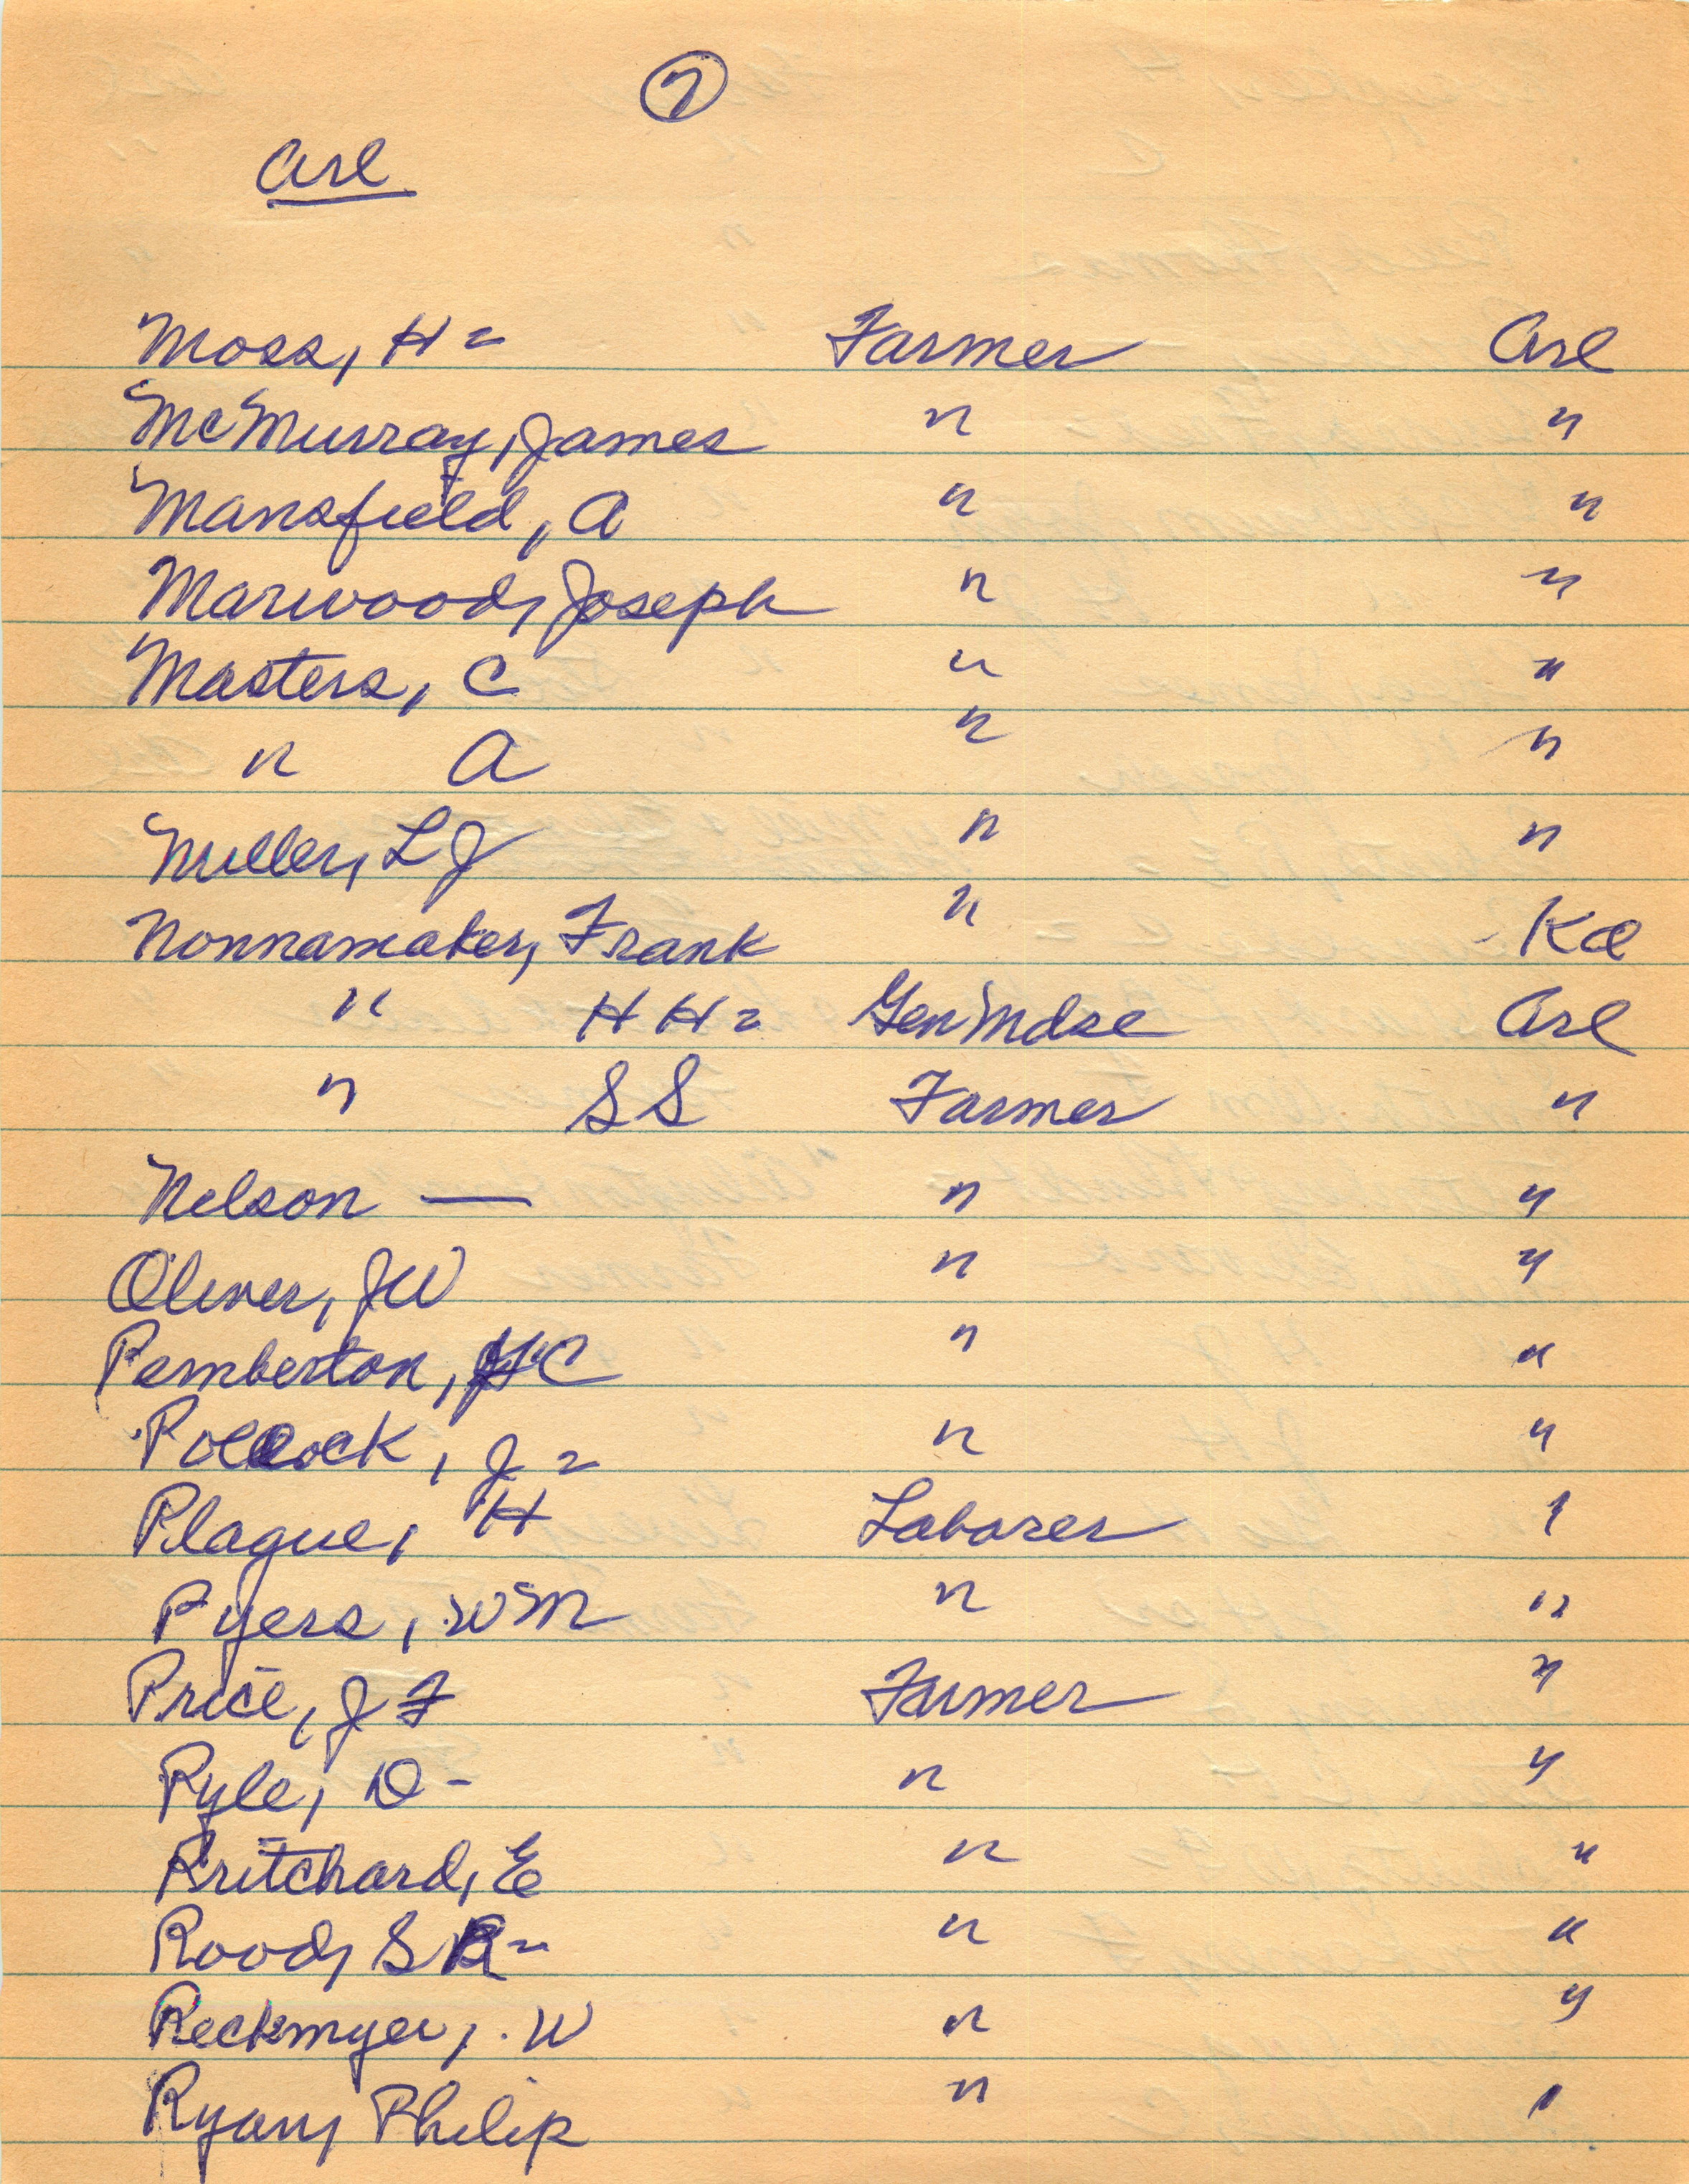 7
Arl
Moss, H = Farmer Arl
McMurray, James " "
Mansfield, A " "
Marwood, Joseph " "
Masters, C " "
" A " "
Muller, L J " "
Nonnamaker, Frank " Kal
" H H = Gen Mdse Arl
" S S Farmer "
Nelson — " "
Oliver, J W " "
Pemberton, H C " "
Pollock, J = " "
Plague, H Laborer "
Pyers, Wm " "
Price, J F Farmer "
Pyle, D - " "
Pritchard, E " "
Rood, S R = " "
Reckmyer, W " "
Ryan, Philip " "